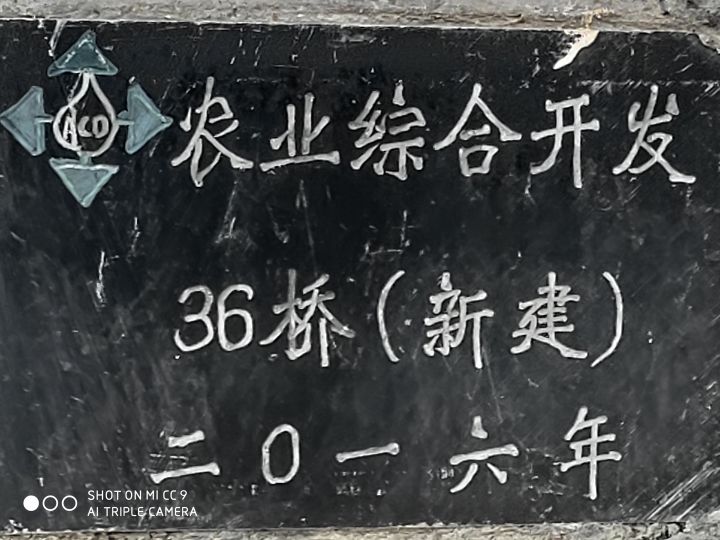 ACD
农业综合开发
36桥(新建)
二0一六年
SHOT ON MI CC 9
AI TRIPLE CAMERA